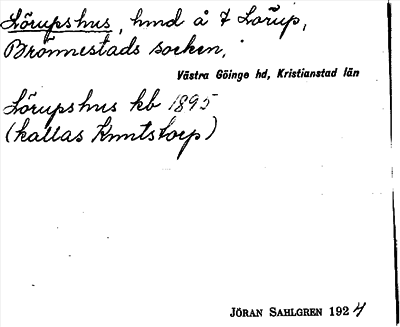 Lörupshus, hmd å 7 Lörup,
Brönnestads socken,
Västra Göinge hd, Kristianstad län
Lörupshus kb 1895
(kallas Knutstorp)
JÖRAN SAHLGREN 1924